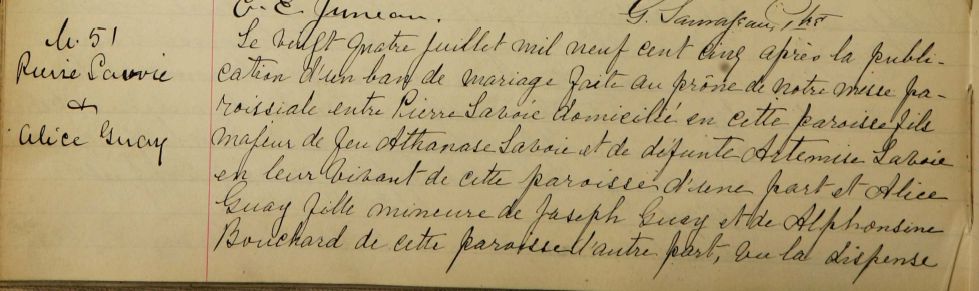 C. E. Juneau.
G. Ptre
M. 51
Pierre Savoie
+
Alice Guay
Le vingt quatre juillet mil neuf cent cinq après la publi-
cation d'un ban de mariage faite au prône de notre messe pa-
roissiale entre Pierre Savoie domicilié en cette paroisse fils
majeur de feu Athanase Savoie et de defunte Artemise Savoie
en leur vivant de cette paroisse d'une part et Alice
Guay fille mineure de Joseph Guay et de Alphonsine
Bouchard de cette paroisse d'autre part, vu la dispense